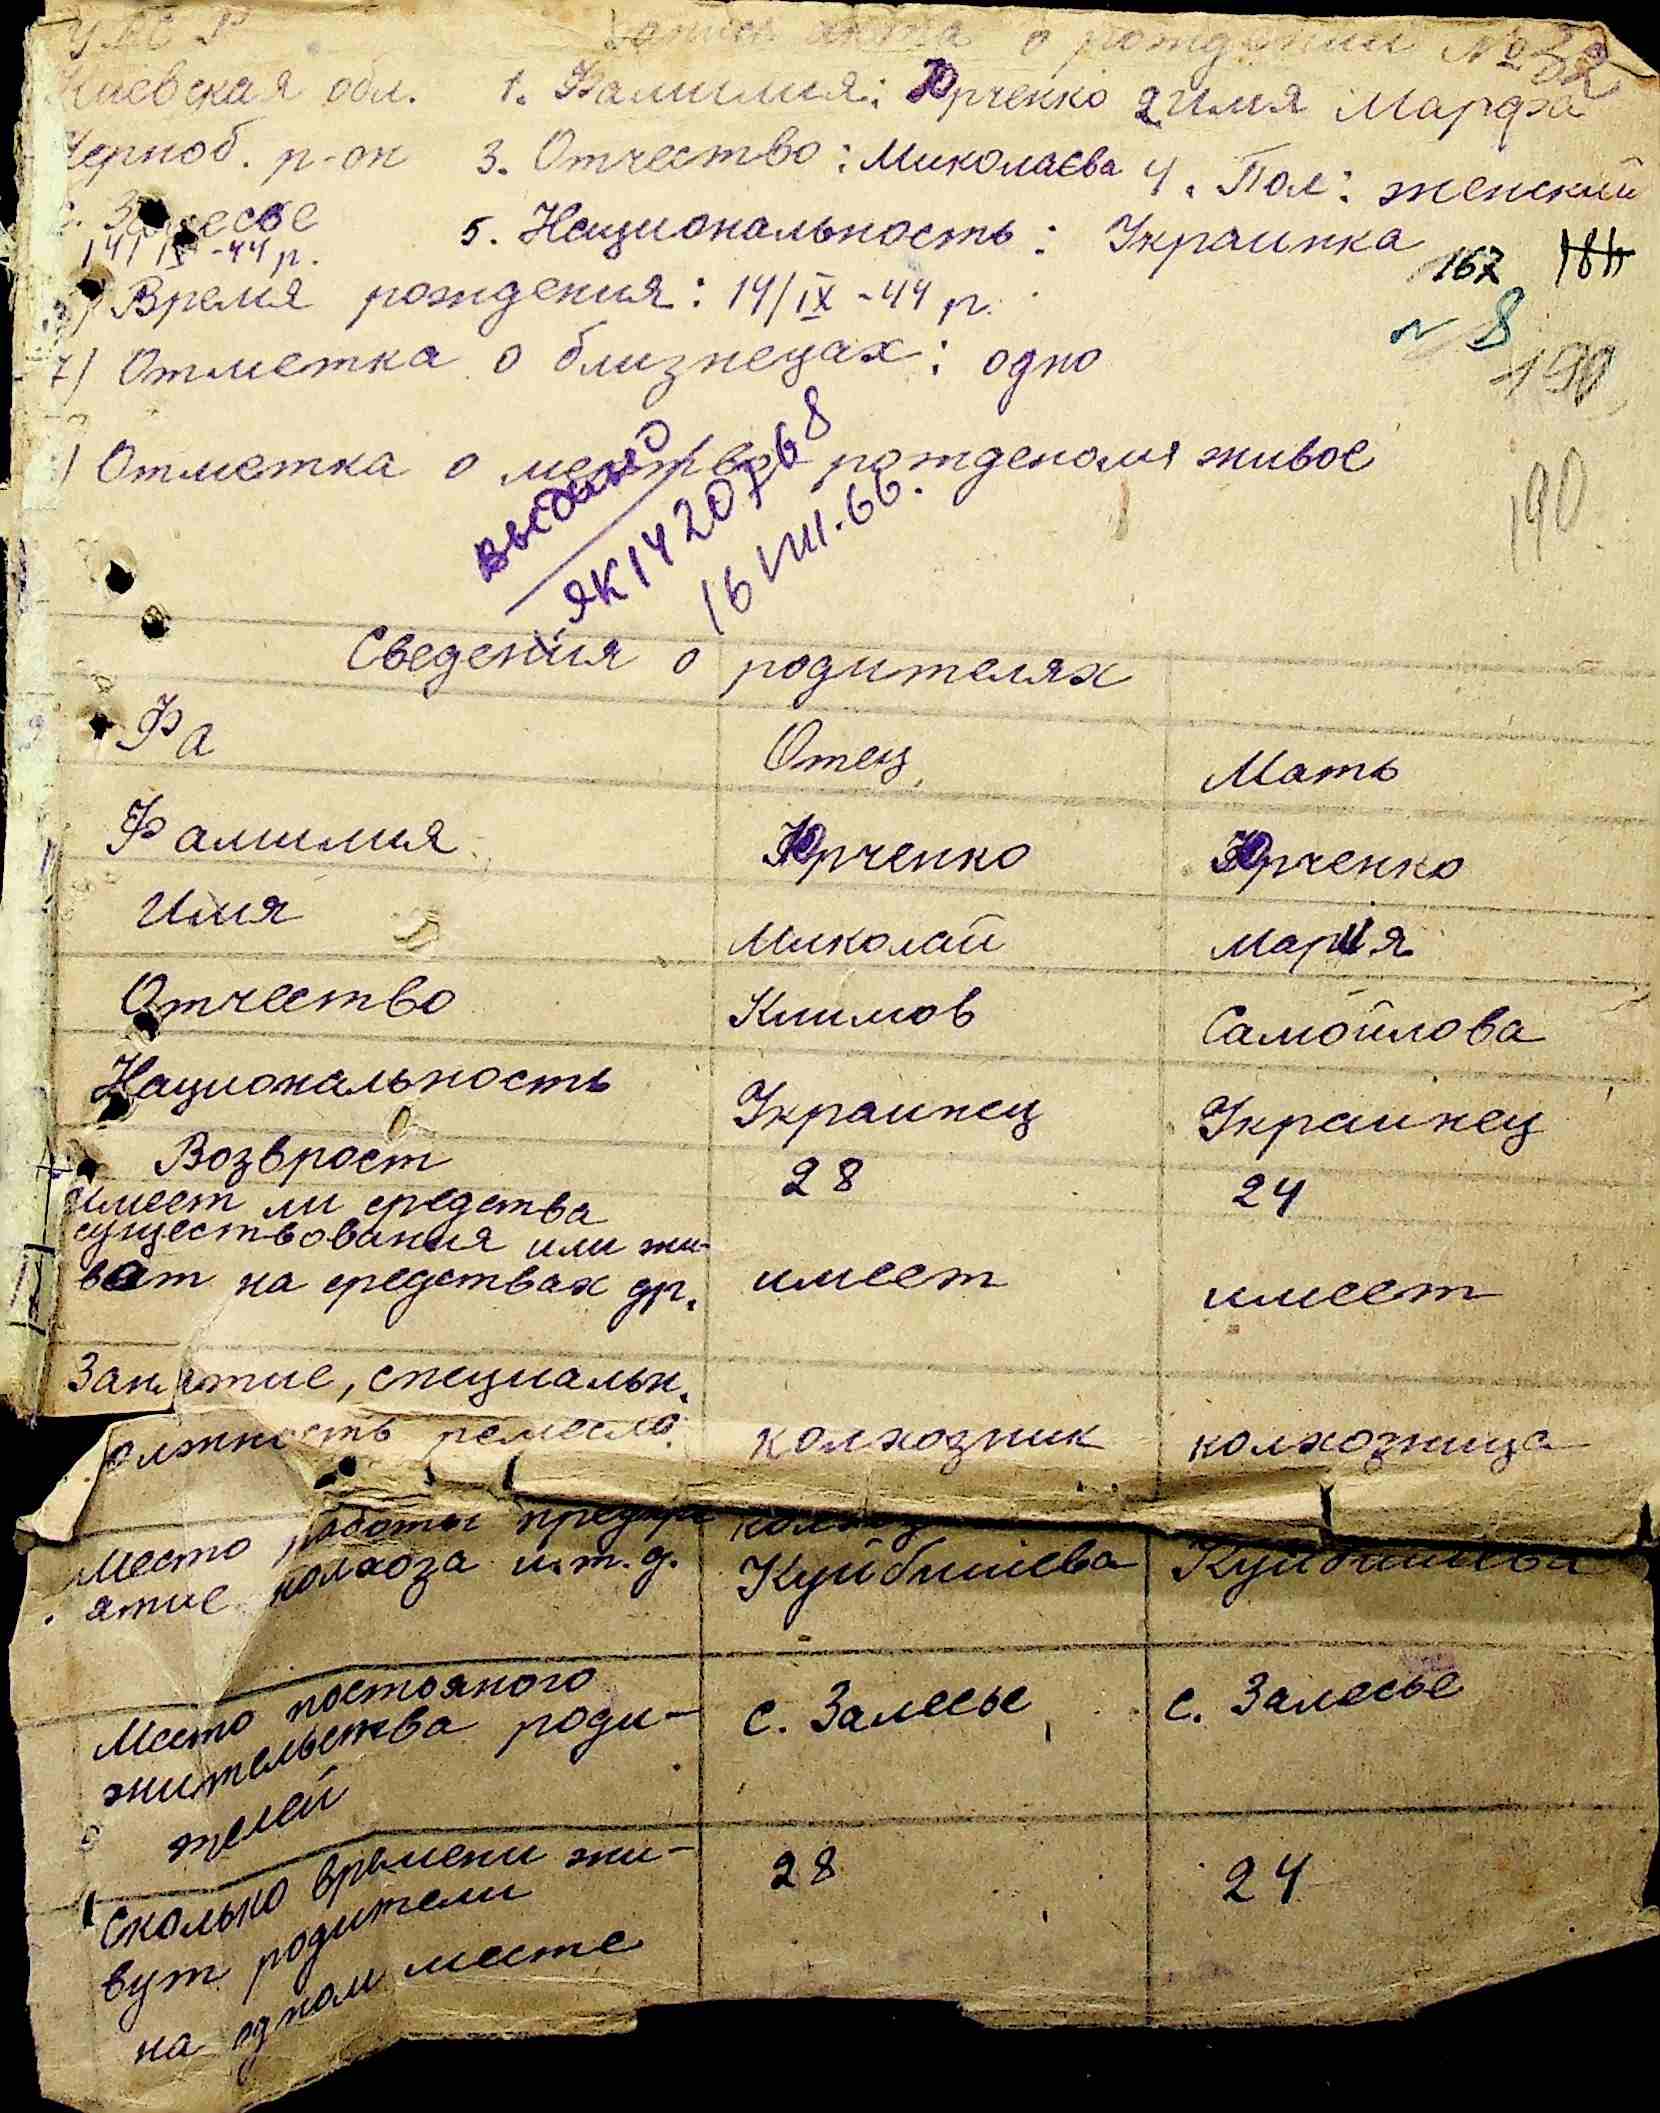 УССР Запись акта о рождении № 32
Киевская обл. 1. Фамилия: Юрченко 2 Имя Марфа
Черноб. р-он 3. Отчество: Миколаєва 4. Пол: женский
с. Залесье 5. Национальность: Украинка
14/IX-44 р.
167
6) Время рождения: 14/IX-44 р.
№ 8
7) Отметка о близнецах: одно
190
) Отметка о мертво рожденомя живое
190
выдано
ЯК 1420768
16 VIII.66.
Сведения о родителях
Фа Отец Мать
Фамилия Юрченко Юрченко
Имя Миколай Мария
Отчество Климов Самойлова
Национальность Украинец Украинец
Возвраст 28 24
имеет ли средства
существования или жи-
вет на средствах др. имеет имеет
Занятие, специальн.
должность ремесло. колхозник колхозница
Место работы предпри колхоз
ятие колхоза и.т.д. Куйбишева Куйбишева
Место постояного
жительства роди- с. Залесье с. Залесье
телей
Сколько времени жи- 28 24
вут родители
на одном месте